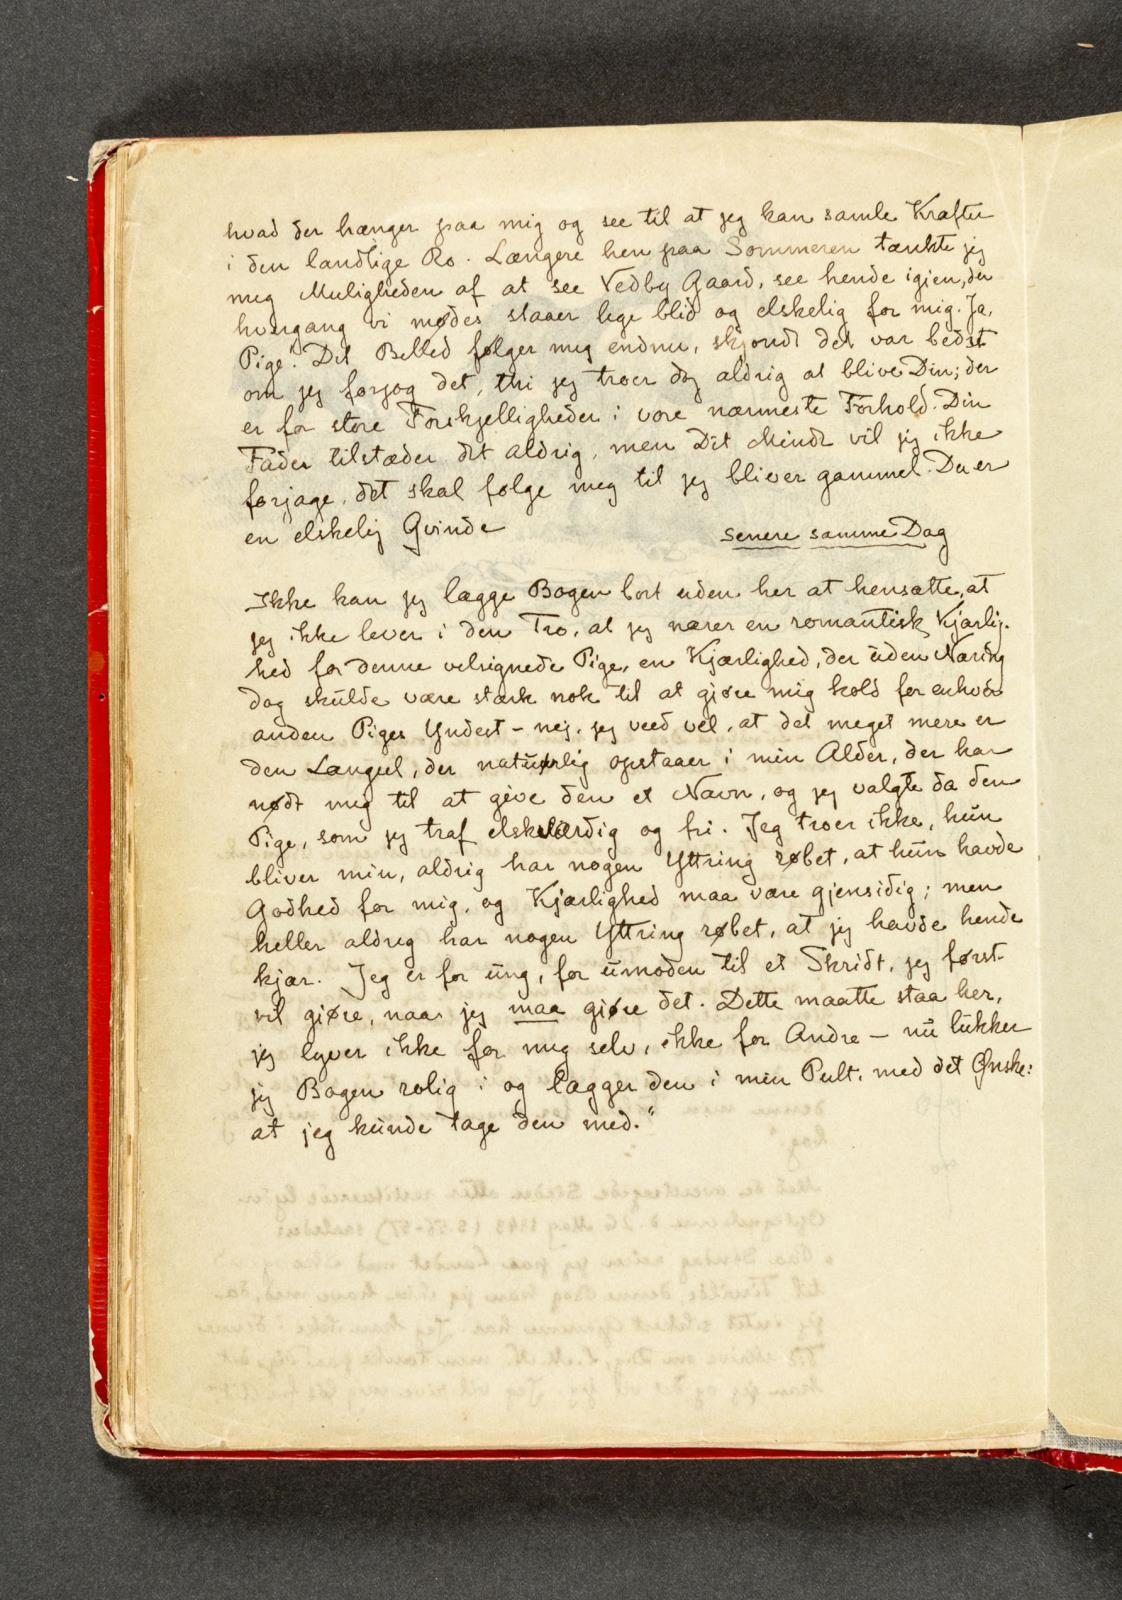 hvad der hænger paa mig og see til at jeg kan samle Kræfter
i den landlige Ro. Længere hen paa Sommeren tænkte jeg
mig Muligheden af at see Vedby Gaard, see hende igjen, der
hvergang vi mødes staaer lige blid og elskelig for mig. Ja,
Pige! Dit Billed følger mig endnu, skjøndt det var bedst
om jeg forjog det, thi jeg troer dog aldrig at blive Din; der
er for store Forskjelligheder i vore nærmeste Forhold. Din
Fader tilstæder det aldrig, men Dit Minde vil jeg ikke
forjage, det skal følge mig til jeg bliver gammel. Du er
en elskelig Qvinde
senere samme Dag
Ikke kan jeg lægge Bogen bort uden her at hensætte, at
jeg ikke lever i den Tro, at jeg nærer en romantisk Kjærlig-
hed for denne velsignede Pige, en Kjærlighed, der uden Næring
dog skulde være stærk nok til at gjøre mig kold for enhver
anden Piges Yndest – nej, jeg veed vel, at det meget mere er
den Længsel, der naturlig opstaaer i min Alder, der har
nødt mig til at give den et Navn, og jeg valgte da den
Pige, som jeg traf elskværdig og fri. Jeg troer ikke, hun
bliver min, aldrig har nogen Yttring røbet, at hun havde
Godhed for mig, og Kjærlighed maa være gjensidig; men
heller aldrig har nogen Yttring røbet, at jeg havde hende
kjær. Jeg er for ung, for umoden til et Skridt, jeg først
vil giøre, naar jeg maa giøre det. Dette maatte staa her,
jeg lyver ikke for mig selv, ikke for Andre – nu lukker
jeg Bogen rolig i og lægger den i min Pult, med det Ønske:
at jeg kunde tage den med."